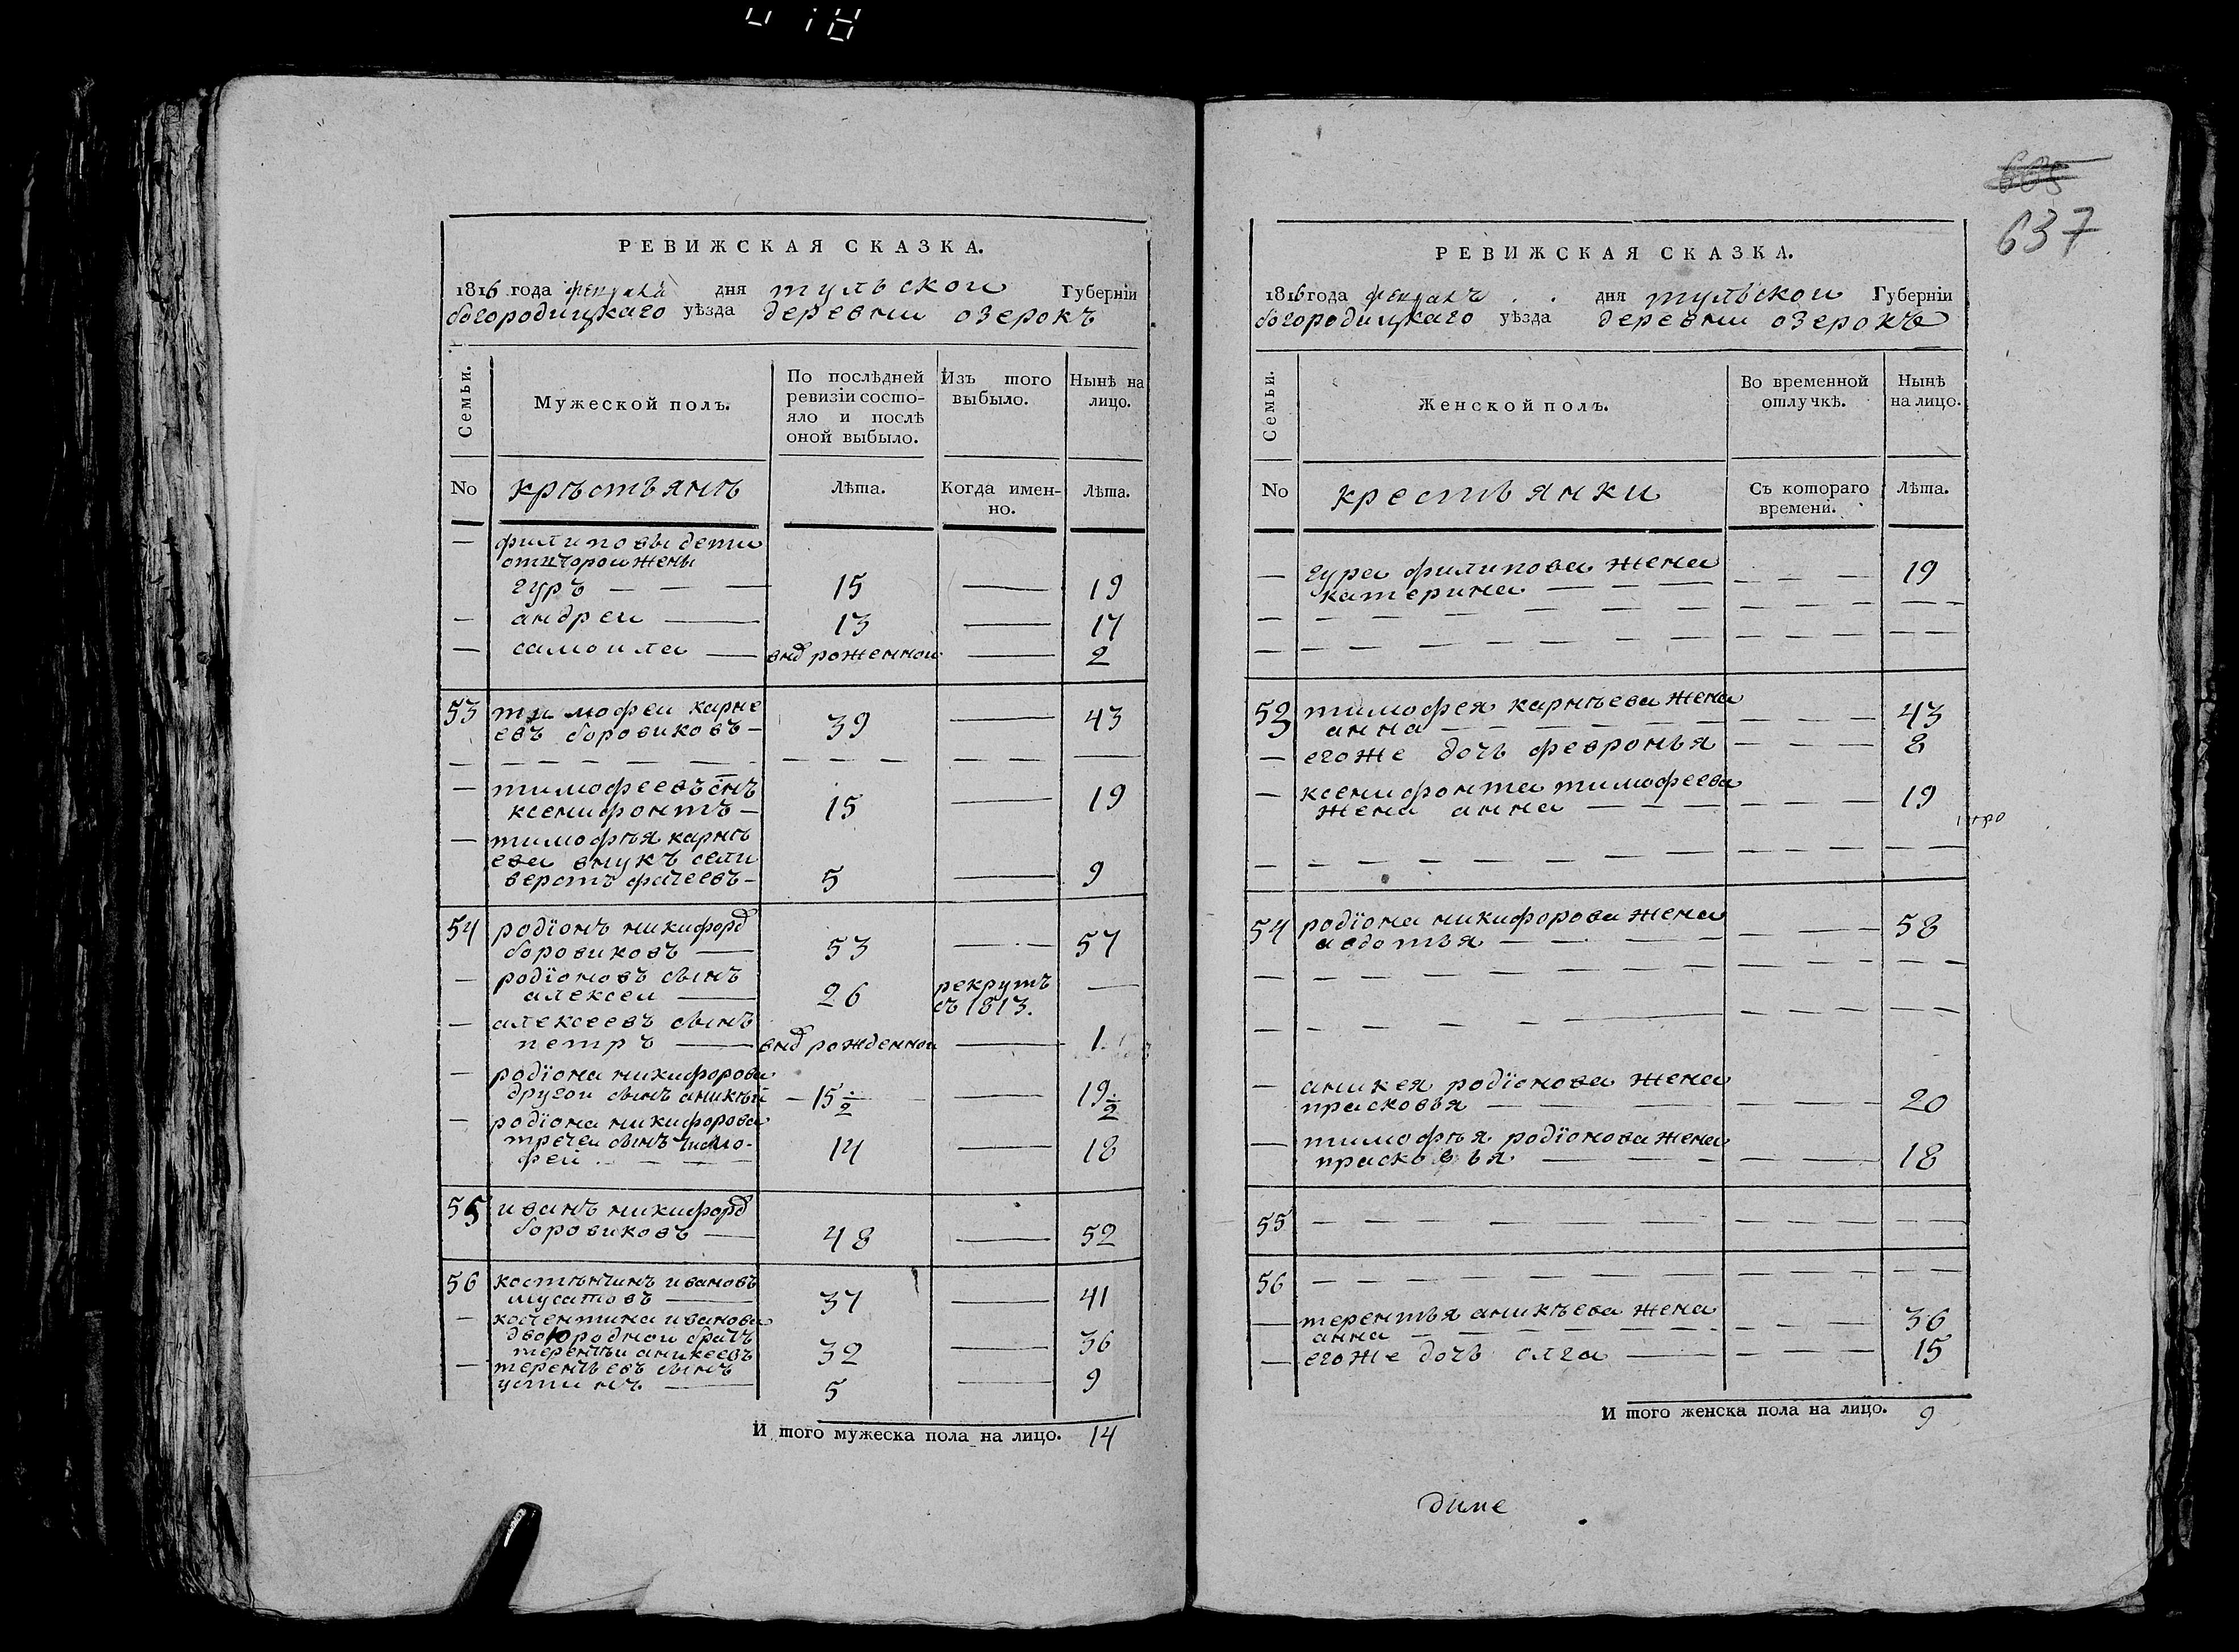 637
РЕВИЖСКАЯ СКАЗКА.
1816 года дня тульскои Губерніи
богородицкаго уѣзда деревни озерокъ
Семьи.
Мужеской полъ.
По послѣдней ревизіи состо-
яло и послѣ
оной выбыло.
Изъ того
выбыло.
Нынѣ на
лицо.
No
крѣстьянѣ
Лѣта.
Когда имен-
но.
Лѣта.
— филиповы дети
жены
гуръ — 15 — 19
— андреи — 13 — 17
— самоила — роженнои — 2
53 тимофеи карне
евъ боровиковъ — 39 — 43
— тимофеевъ снъ
ксенифонтъ — 15 — 19
— тимофѣя карнѣ
ева внукъ сели
верстъ фатеевъ — 5 — 9
54 родїонъ никифоро
боровиковъ — 53 — 57
— родїоновъ сынъ
алексеи — 26 рекрутъ —
съ 1813.
— алексеевъ сынъ
петръ — рожденнои — 1
— родїона никифорова
другои сынъ аникѣи — 15 ½ — 19 ½
— родїона никифорова
третеи сынъ тимо-
феи — 14 — 18
55 иванъ никифоро
боровиковъ — 48 — 52
56 костентинъ ивановъ
мусатовъ — 37 — 41
— костентина иванова
двоюроднои братъ
терентьи аникеевъ 32 — 36
— терентьевъ сынъ
устинъ — 5 — 9
И того мужеска пола на лицо. 14
РЕВИЖСКАЯ СКАЗКА.
1816 года дня тульскои Губерніи
богородицкаго уѣзда деревни озерокъ
Семьи.
Женской полъ.
Во временной
отлучкѣ.
Нынѣ
на лицо.
No
крестьянки
Съ котораго
времени.
Лѣта.
— гура филипова жена
катерина — 19
53 тимофея карнѣева жена
анна — 43
— егоже дочь февронья — 8
— ксенифонта тимофеева
жена анна — 19
54 родїона никифорова жена
авдотья — 58
— аникея родїонова жена
прасковья — 20
— тимофѣя родїонова жена
прасковья — 18
55
56
— терентья аникѣева жена
анна — 36
— егоже дочь олга — 15
И того женска пола на лицо. 9